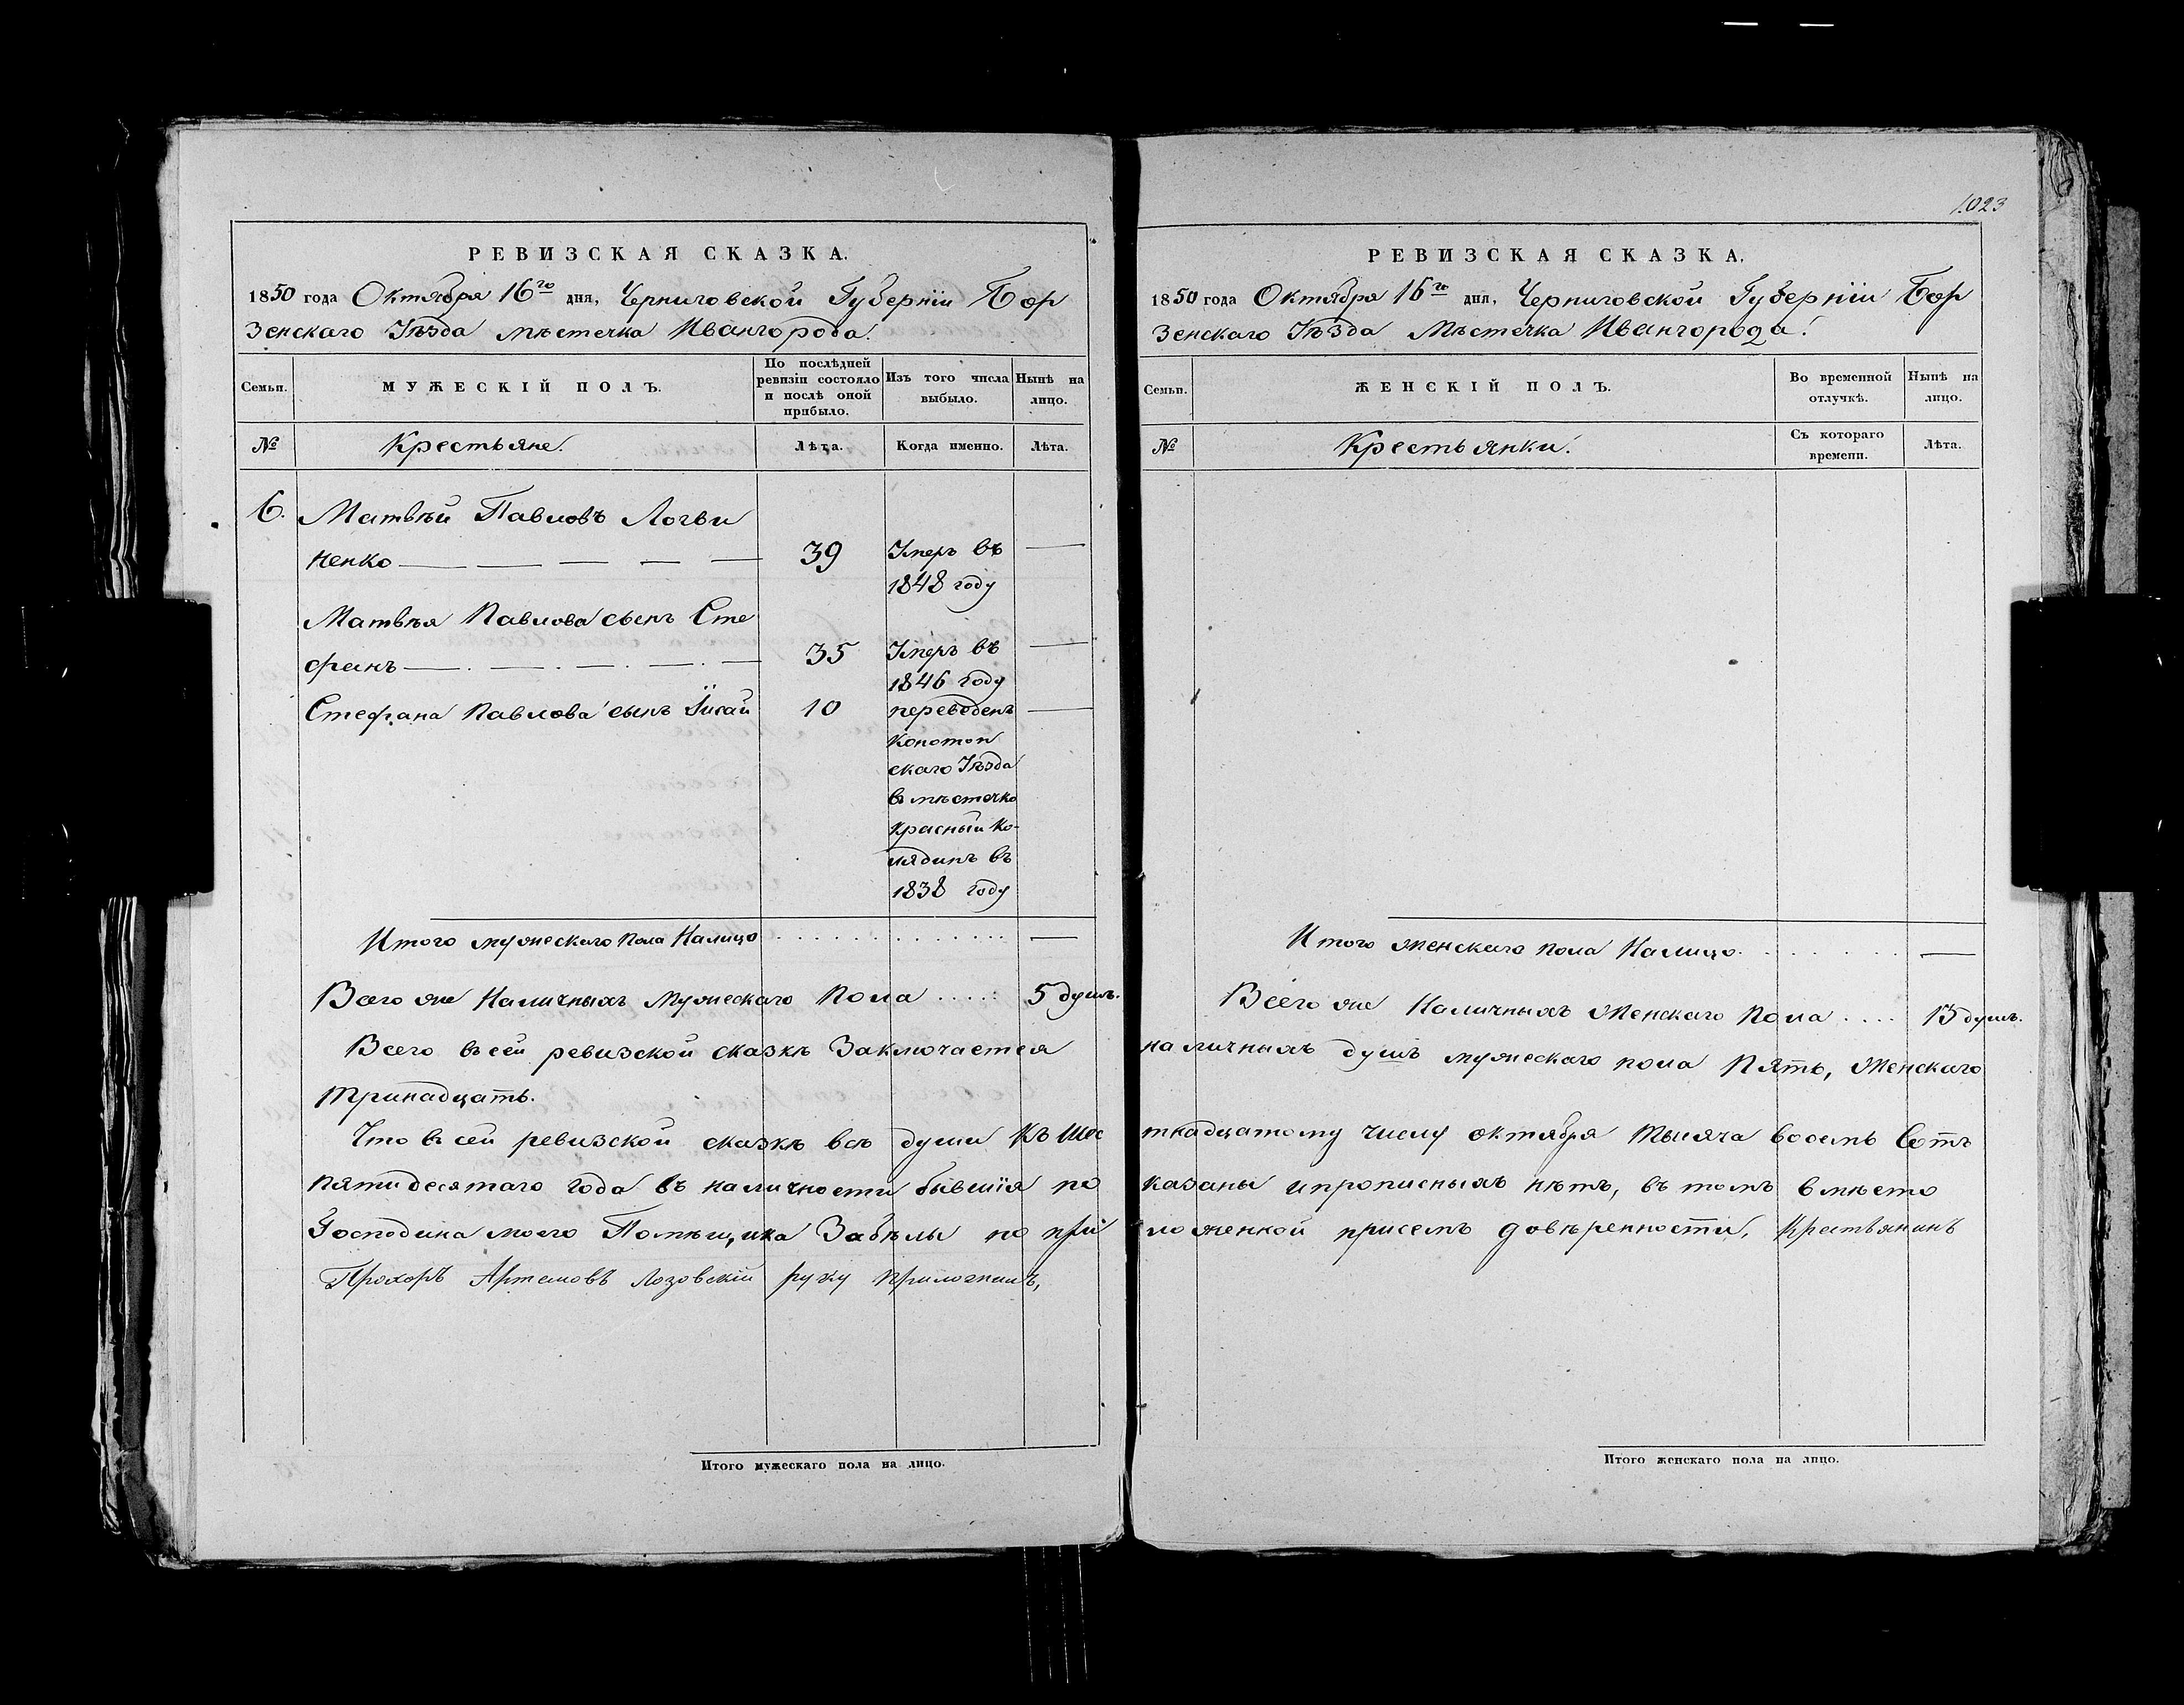 1023
РЕВИЗСКАЯ СКАЗКА.
1850 года Октября 16го дня, Черниговской Губерніи Бор
зенскаго Уѣзда мѣстечка Ивангорода.
Семьи.
МУЖЕСКІЙ ПОЛЪ.
По послѣдней ревизіи состояло и послѣ оной прибыло.
Изъ того числа выбыло.
Нынѣ на лицо.
№
Крестьяне.
Лѣта.
Когда именно.
Лѣта.
6. Матвѣй Павловъ Логви
ненко — — — — — 39 Умеръ въ —
1848 году
Матвѣя Павлова сынъ Сте
фанъ — . — . — . — . — 35 Умеръ въ —
1846 году
Стефана Павлова сынъ 10 переведенъ —
Конотоп
скаго Уѣзда
въ мѣстечко
Красный Ко-
лядинъ въ
1838 году
Итого мужескаго пола Налицо . . . . . . . . . . . . . —
Всего же Наличныхъ Мужескаго Пола . . . . . 5 душъ.
Всего въ сей ревизской сказкѣ Заключается
тринадцать.
Что въ сей ревизской сказкѣ всѣ души къ шес
пятидесятаго года въ наличности бывшія по
Господина моего Помѣщика Забѣлы по при
Прохоръ Артемовъ Лозовскій руку приложилъ,
Итого мужескаго пола на лицо.
РЕВИЗСКАЯ СКАЗКА.
1850 года Октября 16го дня, Черниговской Губерніи Бор
зенскаго Уѣзда Мѣстечка Ивангорода.
Семьи.
ЖЕНСКІЙ ПОЛЪ.
Во временной отлучкѣ.
Нынѣ на лицо.
№
Крестьянки.
Съ котораго времени.
Лѣта.
Итого женскаго пола Налицо. . . . . . . —
Всего же Наличныхъ Женскаго Пола . . . . 13 душъ.
наличныхъ душъ мужескаго пола Пять, Женскаго
тнадцатому числу октября тысяча восемь сотъ
казаны и прописныхъ нѣтъ, въ томъ вмѣсто
ложенной присемъ довѣренности, Крестьянинъ
Итого женскаго пола на лицо.